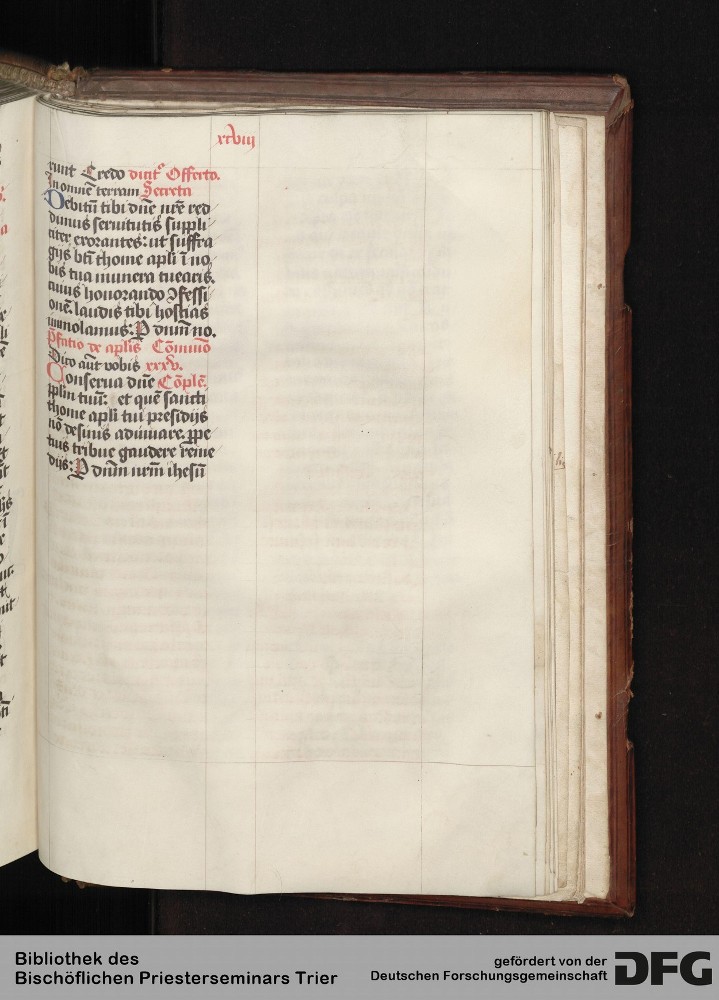 xcviij
runt Credo dicit᷑ Offerto.
In omnē terram Secreta
Debitū tibi dn̄e nr̄e red
dimus seruitutis suppli
citer exorantes: ut suffra
gijs bt̄i thome apl̄i ī no
bis tua munera tuearis.
cuius honorando ꝯfessi
onē. laudis tibi hostias
immolamus: P dnm̄ no.
P̄fatio de apl̄is Cōmuīo
Dico aūt vobis xxxv.
Conserua dn̄e Cōplē.
ppl̄m tuū: et quē sancti
thome apl̄i tui presidijs
nō desinis adiuuare. ꝑpe
tuis tribue gaudere reme
dijs: P dnm̄ nrm̄ ihesū
Bibliothek des
Bischöflichen Priesterseminars Trier
gefördert von der
Deutschen Forschungsgemeinschaft
DFG